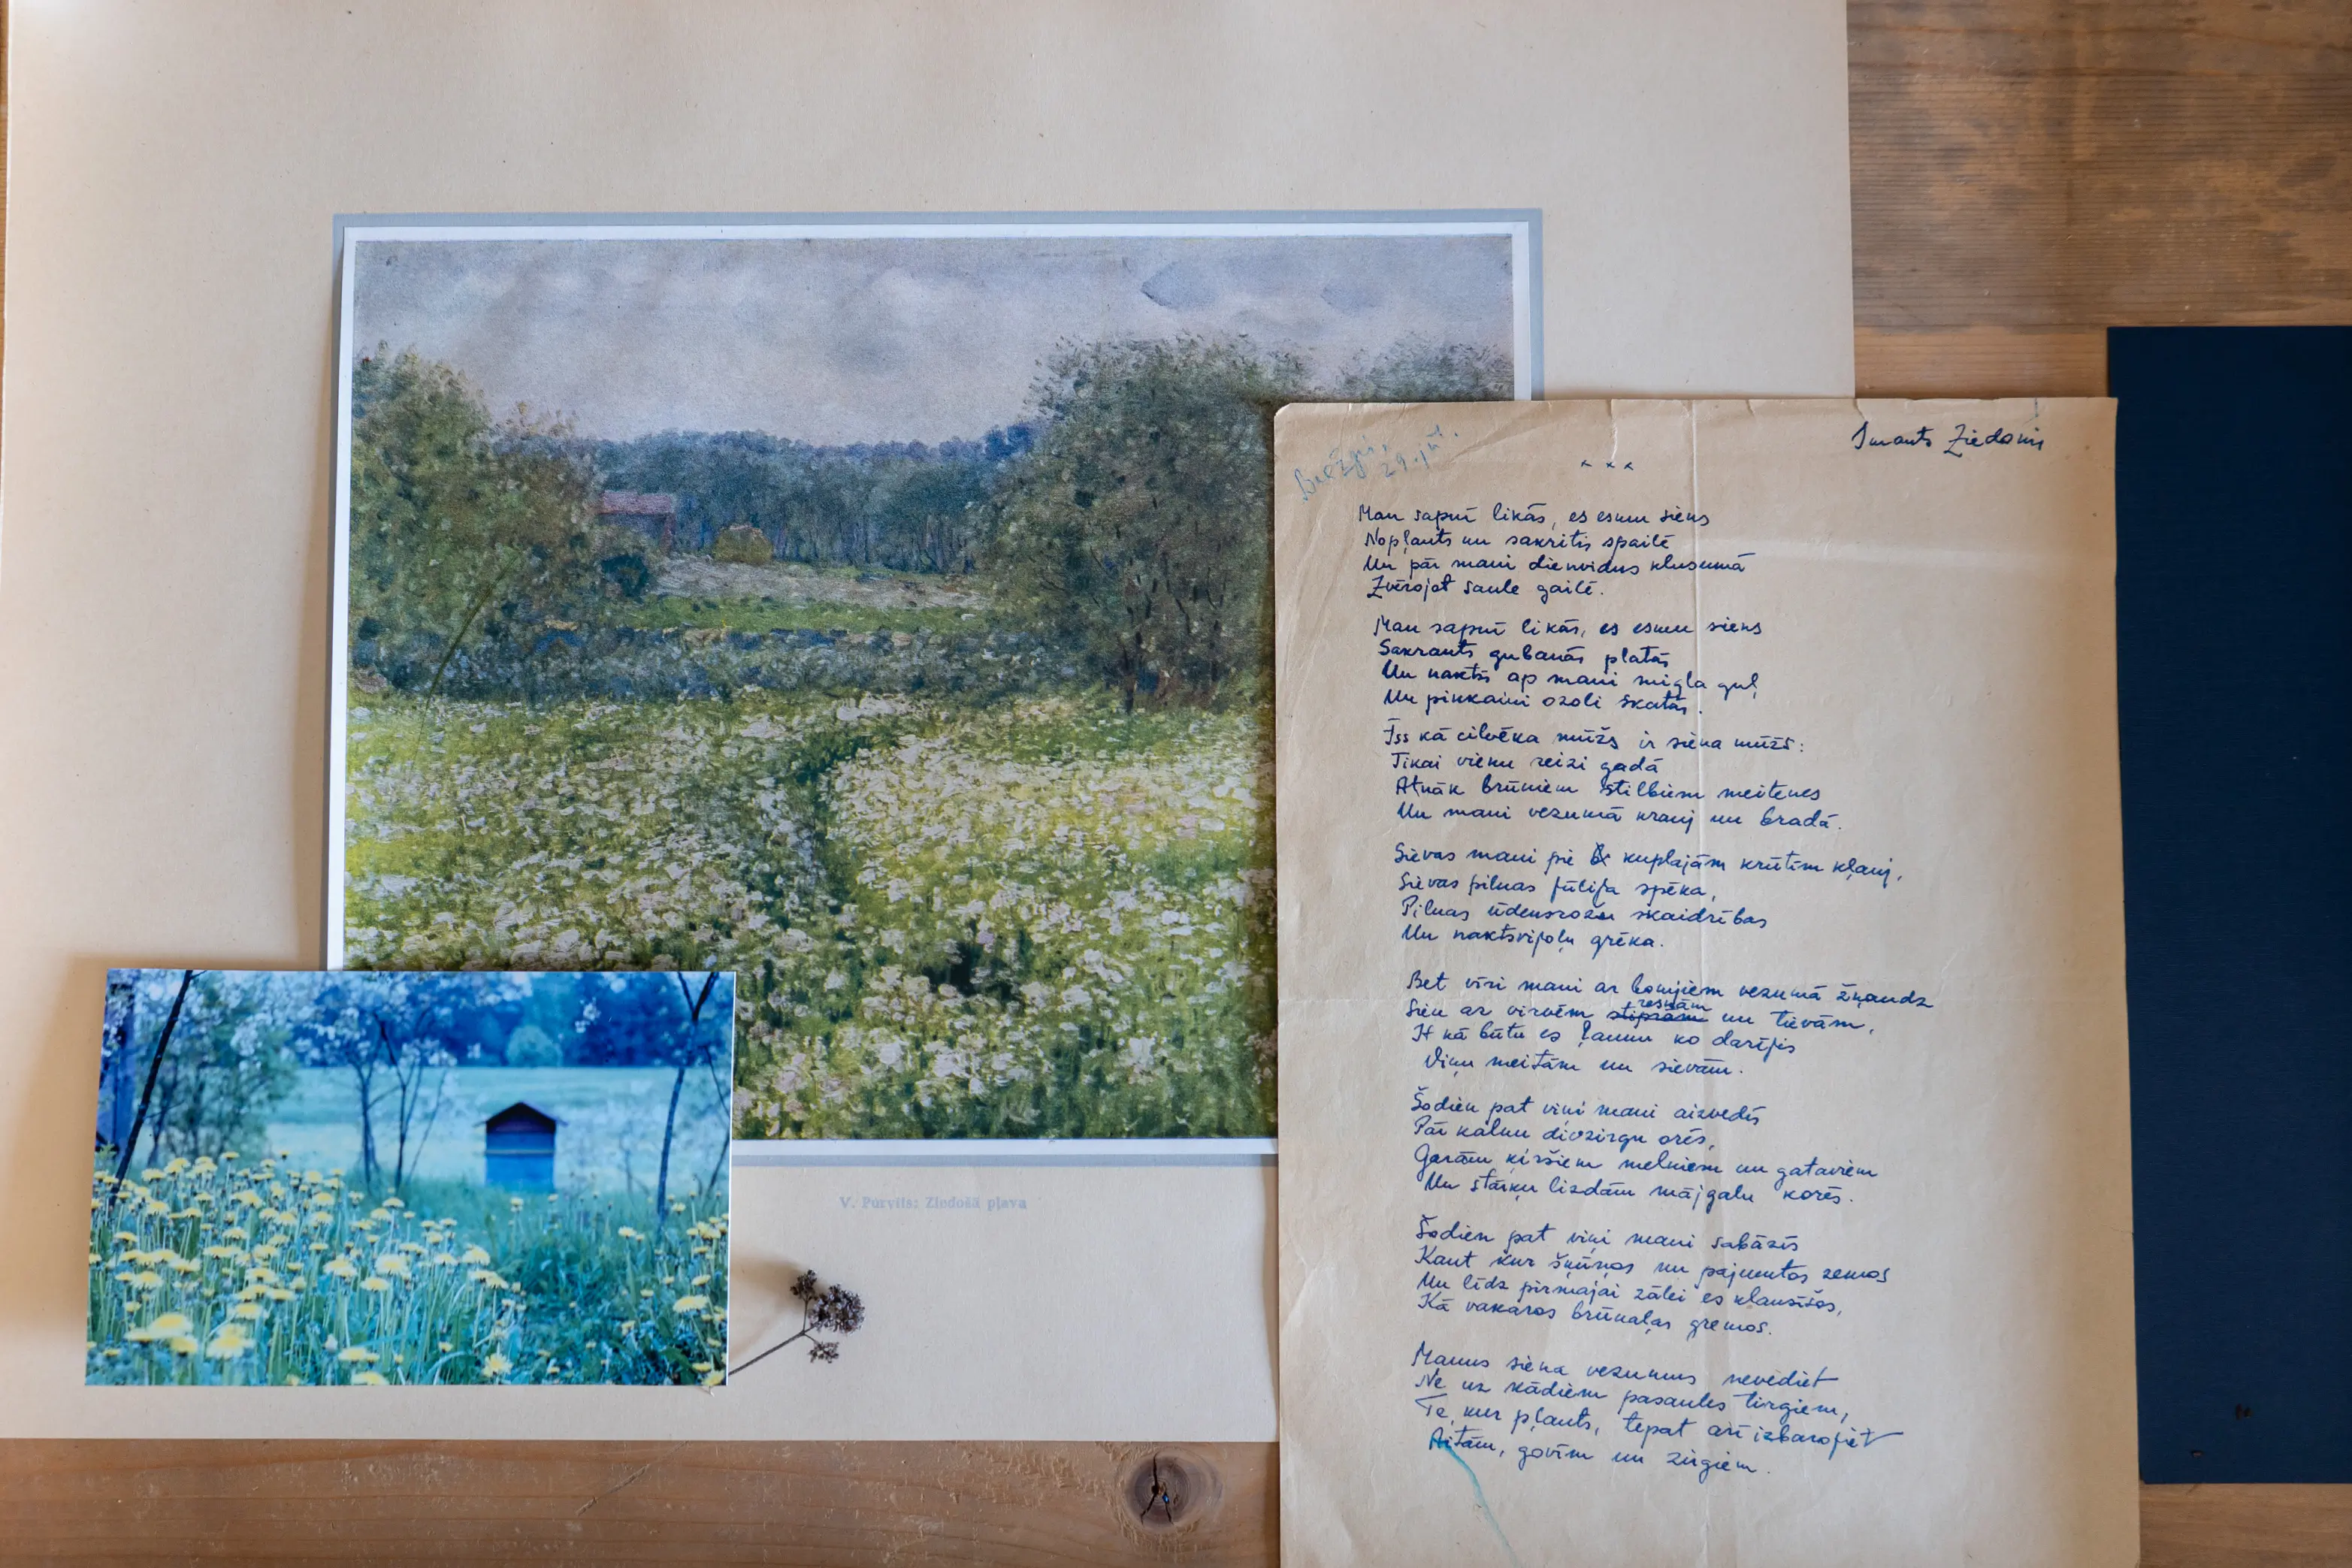 V. Purvīts: Ziedošā pļava
29. jūl.
Imants Ziedonis
× × ×
Man sapnī likās, es esmu siens
Nopļauts un sakritis spailē
Un pār mani dienvidus klusumā
Zvērojot saule gailē.
Man sapnī likās, es esmu siens
Sakrauts gubanās platās
Un naktīs ap mani migla guļ
Un pinkaini ozoli skatās.
Īss kā cilvēka mūžs ir siena mūžs:
Tikai vienu reizi gadā
Atnāk brūniem stilbiem meitenes
Un mani vezumā krauj un bradā.
Sievas mani pie kuplajām krūtīm kļauj,
Sievas pilnas jūlija spēka,
Pilnas ūdensrožu skaidrības
Un naktsvijoļu grēka.
Bet vīri mani ar bomjiem vezumā žņaudz
Sien ar virvēm stiprām resnām un tievām,
It kā būtu es ļaunu ko darījis
Viņu meitām un sievām.
Šodien pat viņi mani aizvedīs
Pār kalnu divzirgu orēs,
Garām ķiršiem melniem un gataviem
Un stārķu lizdām mājgalu korēs.
Šodien pat viņi mani sabāzīs
Kaut kur šķūņos un pajumtos zemos
Un līdz pirmajai zālei es klausīšos,
Kā vakaros brūnaļas gremos.
Manus siena vezumus nevediet
Ne uz kādiem pasaules tirgiem,
Te, kur pļauts, tepat arī izbarojiet
Aitām, govīm un zirgiem.